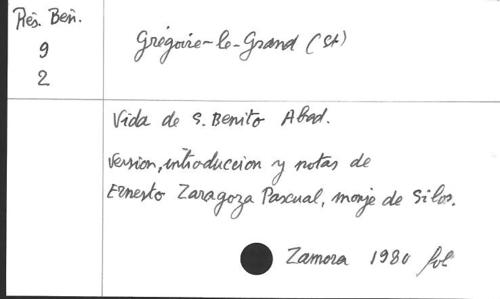 Rés. Bén.
9
2
Grégoire-le-Grand (St)
Vida de S. Benito Abad.
version, introduccion y notas de
Ernesto Zaragoza Pascual, monje de Silos.
Zamora 1980